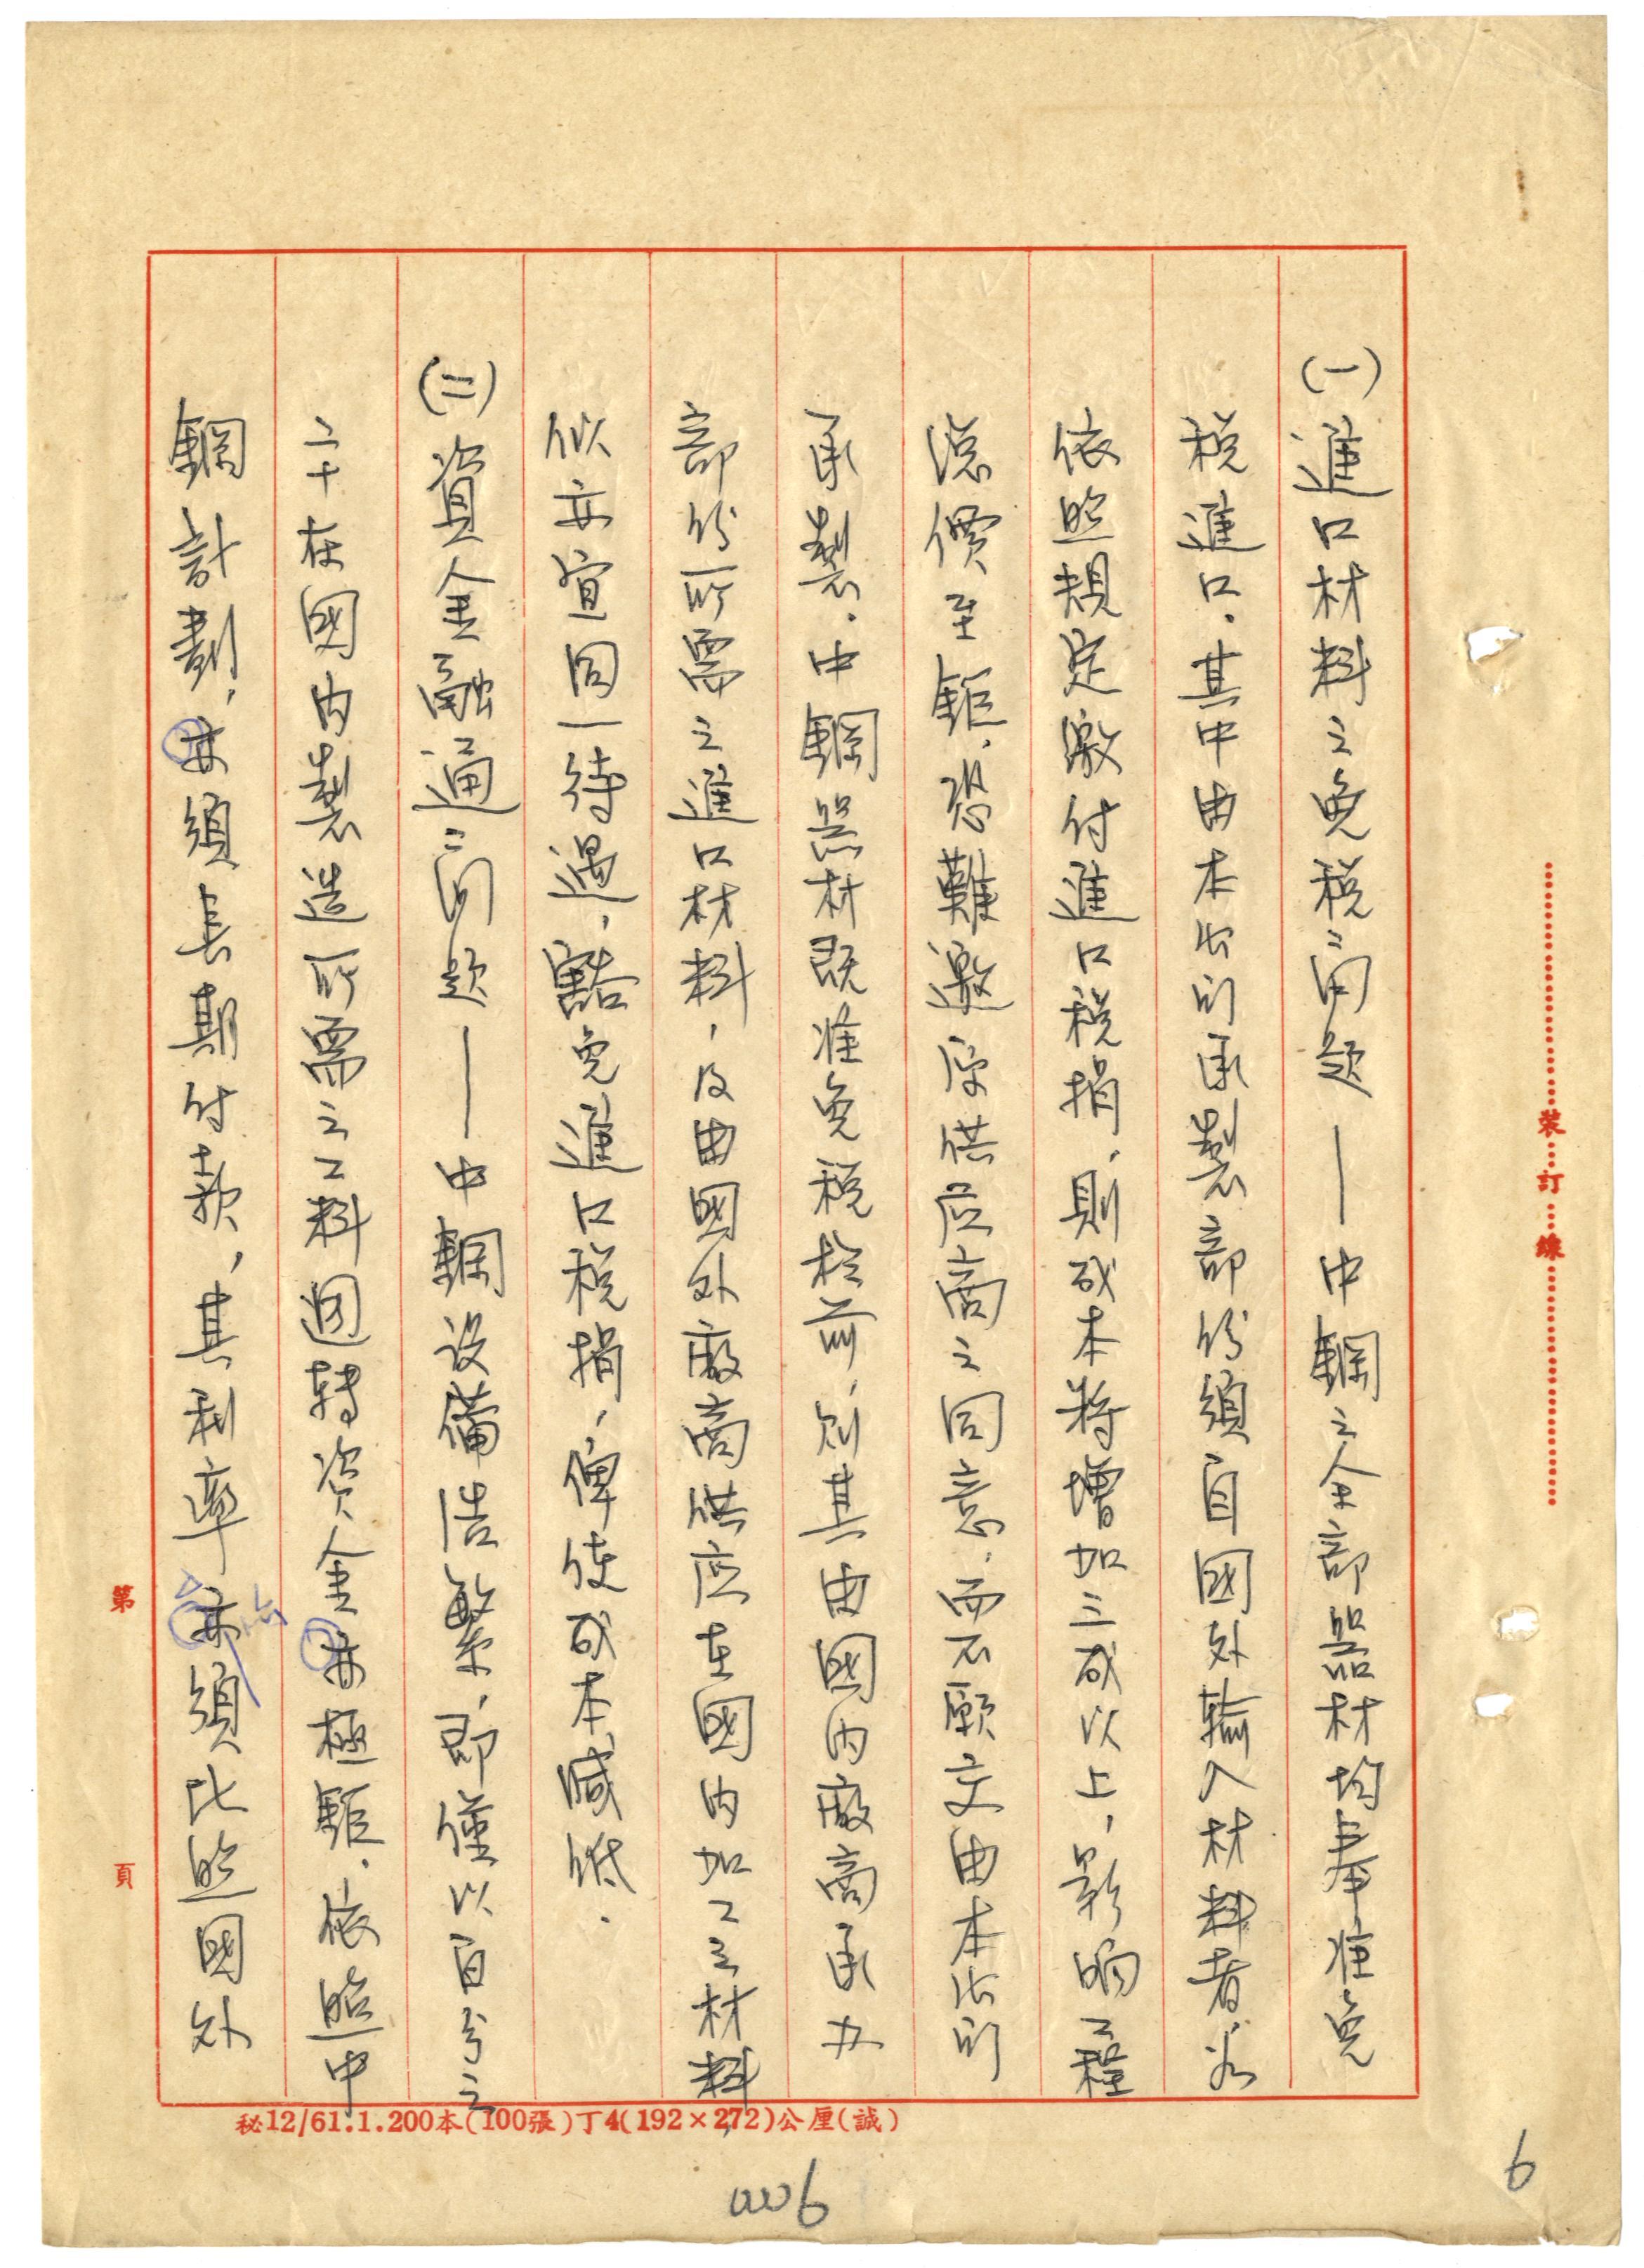 (一)進口材料之免稅之問題——中鋼之全部器材均奉准免
稅進口．其中由本公司承製部份須自國外輸入材料者，若
依照規定繳付進口稅捐，則成本將增加三成以上，影响工程
總價至鉅，恐難邀原供应商之同意，而不願交由本公司
承製．中鋼器材既准免稅於前，則其由國内廠商承办
部份所需之進口材料，及由國外廠商供应在國内加工之材料
似亦宜同一待遇，豁免進口稅捐，俾使成本減低．
(二)資金融通之問題——中鋼設備浩繁，即僅以百分之
二十在國内製造所需之工料週轉資金亦極鉅．依照中
鋼計劃，亦須長期付款，其利率亦須比照國外
裝訂線
第 頁
秘12/61.1.200本(100張)丁4(192×272)公厘(誠)
0006
6